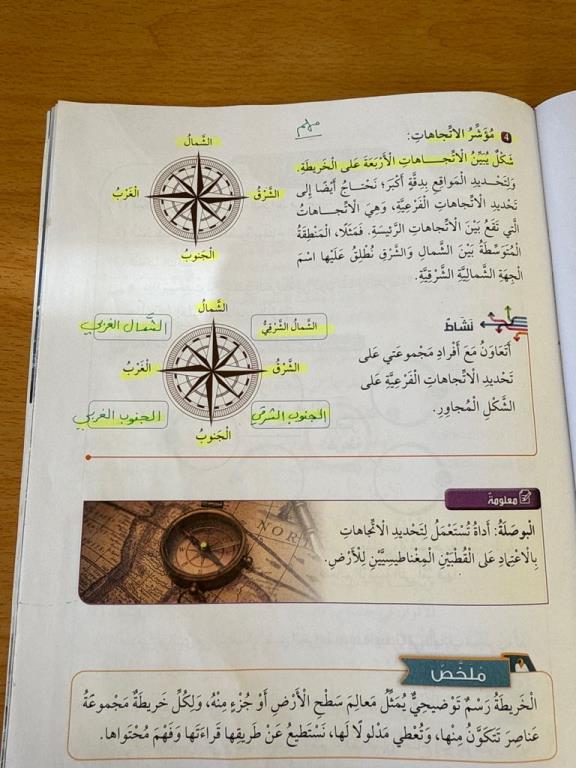 مهم
4 مُؤَشِّرُ الِاتِّجاهاتِ:
شَكْلٌ يُبَيِّنُ الِاتِّجاهاتِ الْأَرْبَعَةَ عَلى الْخَريطَةِ.
وَلِتَحْديدِ الْمَواقِعِ بِدِقَّةٍ أَكْبَرَ؛ نَحْتاجُ أَيْضًا إِلى
تَحْديدِ الِاتِّجاهاتِ الْفَرْعِيَّةِ، وَهِيَ الِاتِّجاهاتُ
الَّتي تَقَعُ بَيْنَ الِاتِّجاهاتِ الرَّئيسَةِ. فَمَثَلًا، الْمَنْطِقَةُ
الْمُتَوَسِّطَةُ بَيْنَ الشَّمالِ وَالشَّرْقِ نُطْلِقُ عَلَيْها اسْمَ
الْجِهَةِ الشَّمالِيَّةِ الشَّرْقِيَّةِ.
الشَّمالُ
الشَّرْقُ
الْغَرْبُ
الْجَنوبُ
نَشاطٌ
أَتَعاوَنُ مَعَ أَفْرادِ مَجْموعَتي عَلى
تَحْديدِ الِاتِّجاهاتِ الْفَرْعِيَّةِ عَلى
الشَّكْلِ الْمُجاوِرِ.
الشَّمالُ
الشَّمالُ الشَّرْقِيُّ
الشَّمال الغربي
الشَّرْقُ
الْغَرْبُ
الجنوب الشرقي
الجنوب الغربي
الْجَنوبُ
معلومة
الْبوصَلَةُ: أَداةٌ تُسْتَعْمَلُ لِتَحْديدِ الِاتِّجاهاتِ
بِالِاعْتِمادِ عَلى الْقُطْبَيْنِ الْمِغْناطيسِيَّيْنِ لِلْأَرْضِ.
NOR
مُلَخَّصٌ
الْخَريطَةُ رَسْمٌ تَوْضيحِيٌّ يُمَثِّلُ مَعالِمَ سَطْحِ الْأَرْضِ أَوْ جُزْءٍ مِنْهُ، وَلِكُلِّ خَريطَةٍ مَجْموعَةُ
عَناصِرَ تَتَكَوَّنُ مِنْها، وَتُعْطي مَدْلولًا لَها، نَسْتَطيعُ عَنْ طَريقِها قِراءَتَها وَفَهْمَ مُحْتَواها.